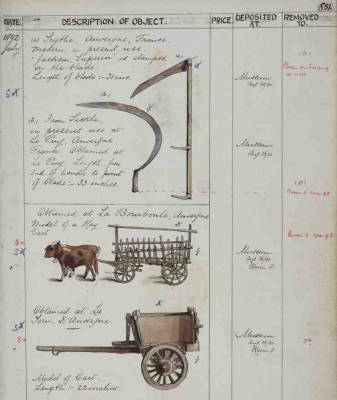 851.
DATE. DESCRIPTION OF OBJECT. PRICE. DEPOSITED AT. REMOVED TO.
1892
July
(A) Scythe, Auvergne, France.
Modern, in present use.
"Jackson Superior" is stamped
on the blade.
Length of blade:- 31 ins.
Museum
Aug
(A)
Room
SX
(B)
(B) Iron Sickle,
in present use at
Le Puy, Auvergne
France. Obtained at
Le Puy. Length from
end of handle to point
of blade:- 33 inches.
Museum
Aug
(B)
Room
Obtained at La Bourboule, Auvergne
Model of a Hay
Cart
X
Museum
Aug
Room
Room
Obtained at La
Tour D'Auvergne
X
Museum
Aug
Room
Model of Cart.
Length:- 22 inches.